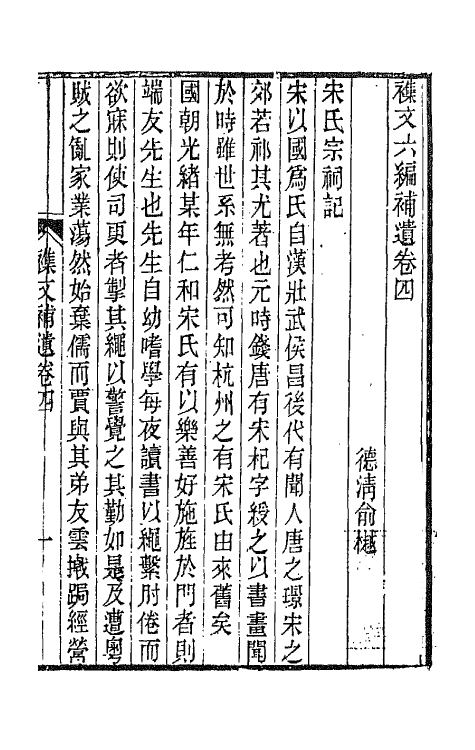 襍文六編補遺卷四
德淸俞樾
宋氏宗祠記
宋以國爲氏自漢壯武侯昌後代有聞人唐之璟宋之
郊若祁其尤著也元時錢唐有宋杞字授之以書畫聞
於時雖世系無考然可知杭州之有宋氏由來舊矣
國朝光緒某年仁和宋氏有以樂善好施旌於門者則
端友先生也先生自幼嗜學每夜讀書以繩繫肘倦而
欲寐則使司更者掣其繩以警覺之其勤如是及遭粵
賊之亂家業蕩然始棄儒而賈與其弟友雲撠跼經營
襍文補遺卷四
一